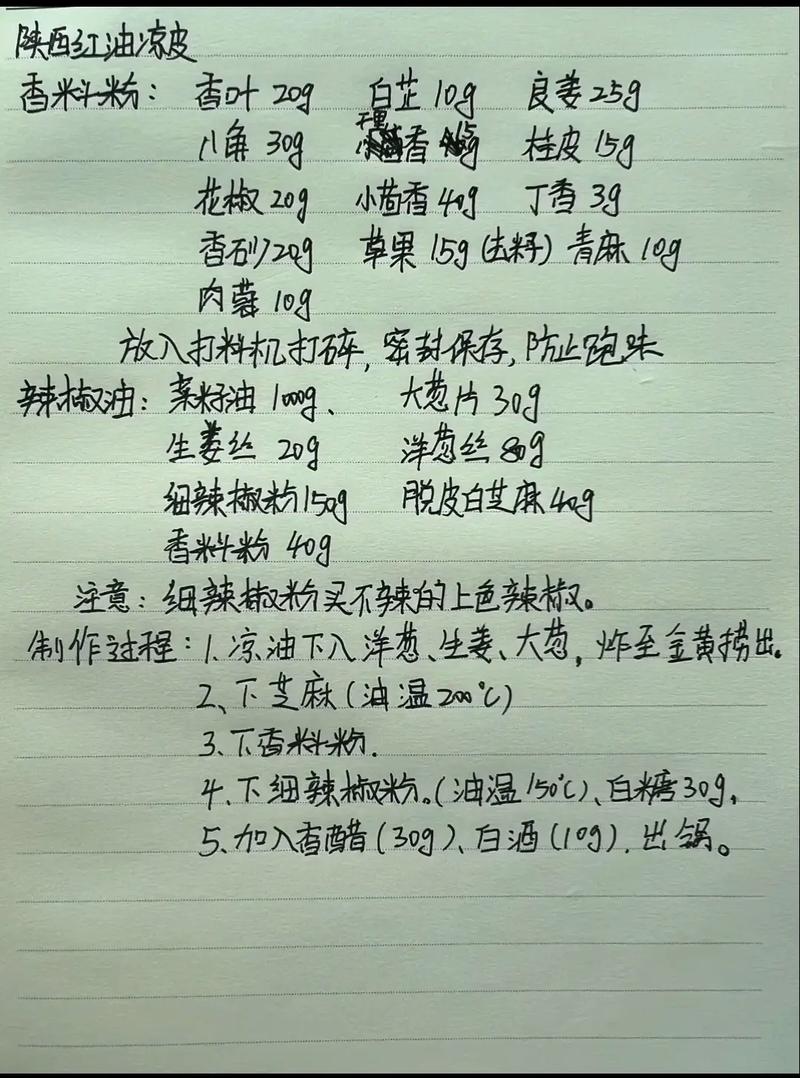 陕西红油凉皮
香料粉： 香叶 20g 白芷 10g 良姜 25g
八角 30g 千里香 15g 桂皮 15g
花椒 20g 小茴香 40g 丁香 3g
香砂 20g 草果 15g (去籽) 青麻 10g
肉蔻 10g
放入打料机打碎，密封保存，防止跑味
辣椒油： 菜籽油 1000g、 大葱片 30g
生姜丝 20g 洋葱丝 80g
细辣椒粉 150g 脱皮白芝麻 40g
香料粉 40g
注意：细辣椒粉买不辣的上色辣椒。
制作过程：1. 凉油下入洋葱、生姜、大葱，炸至金黄捞出。
2、下芝麻（油温 200℃）
3、下香料粉.
4、下细辣椒粉。(油温 150℃)、白糖 30g，
5、加入香醋 (30g)、白酒 (10g). 出锅。